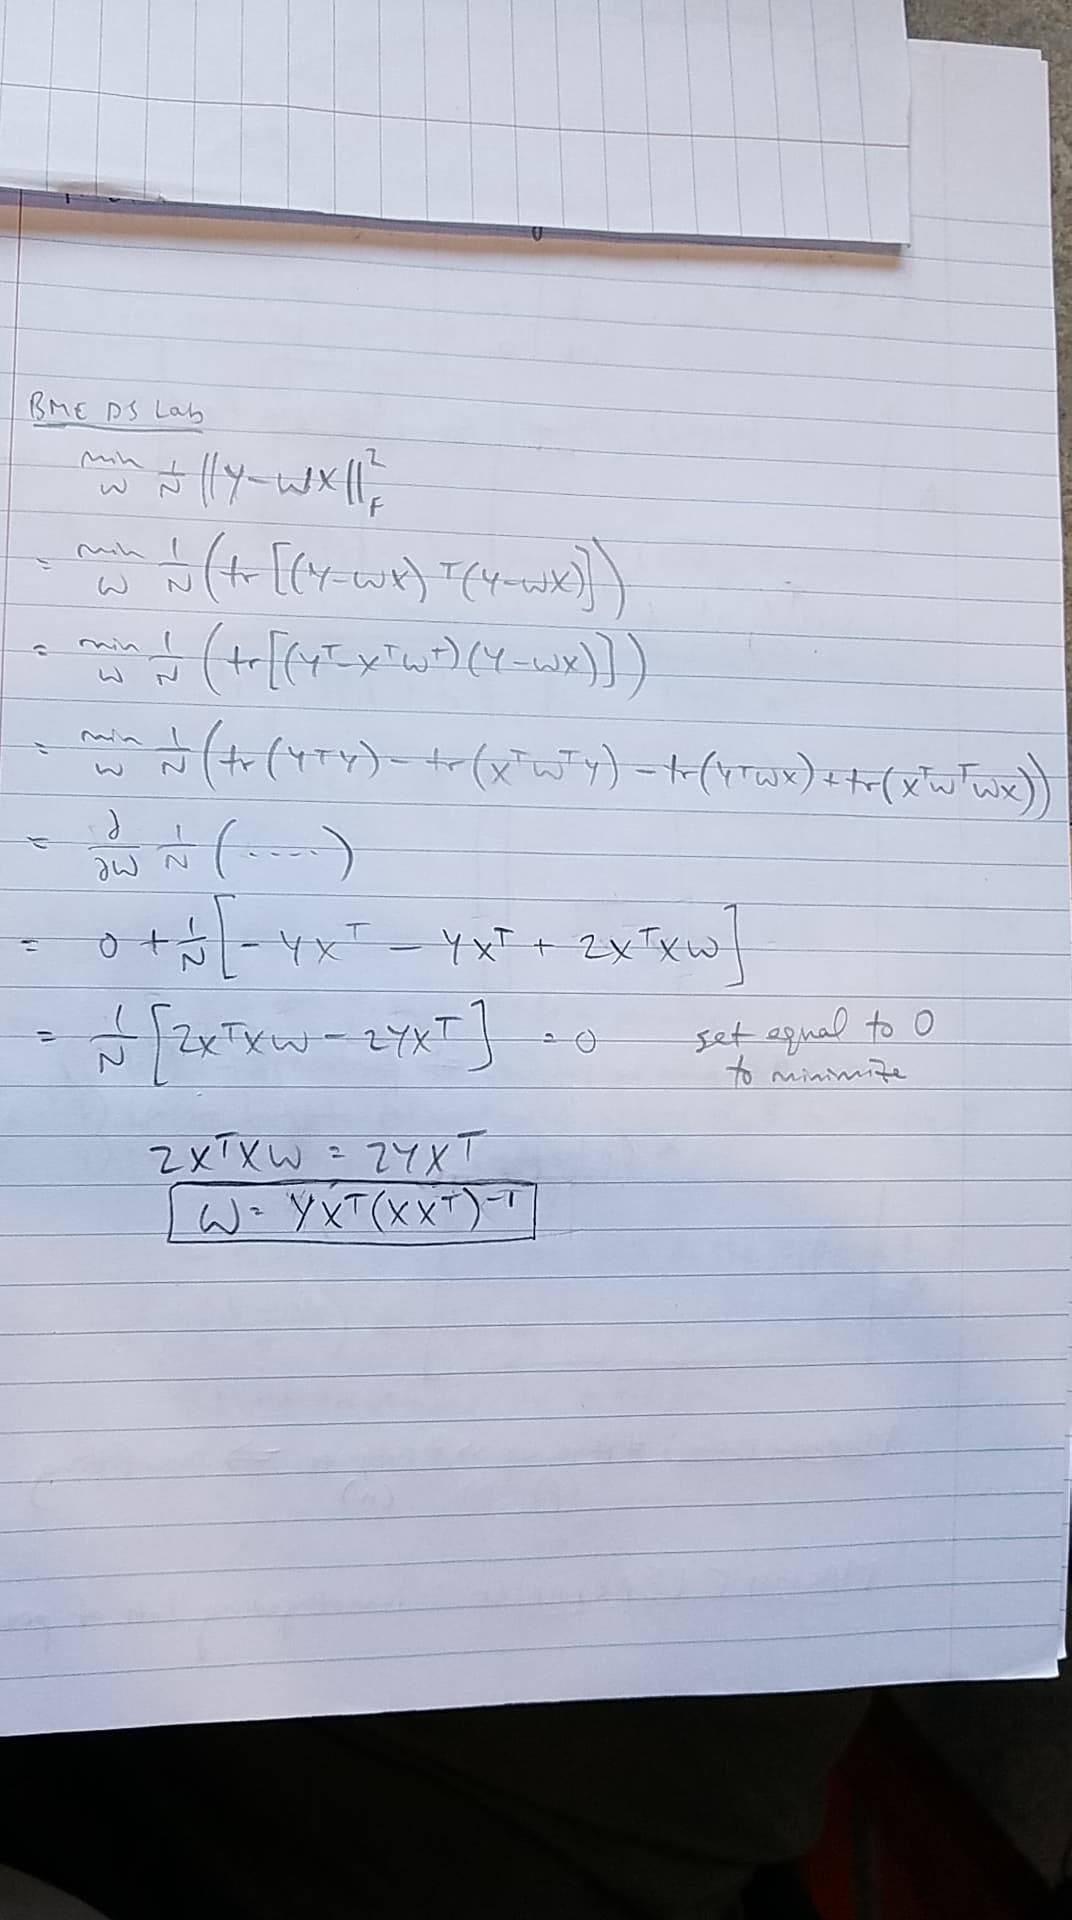 BME DS Lab
min W 1/N ||Y-WX||²_F
= min W 1/N (tr[(Y-WX)ᵀ(Y-WX)])
= min W 1/N (tr[(Yᵀ-XᵀWᵀ)(Y-WX)])
= min W 1/N (tr(YᵀY)-tr(XᵀWᵀY)-tr(YᵀWX)+tr(XᵀWᵀWX))
= ∂/∂W 1/N (.....)
= 0 + 1/N [-YXᵀ - YXᵀ + 2XᵀXW]
= 1/N [2XᵀXW - 2YXᵀ] = 0 set equal to 0
to minimize
2XᵀXW = 2YXᵀ
W = YXᵀ(XXᵀ)⁻¹